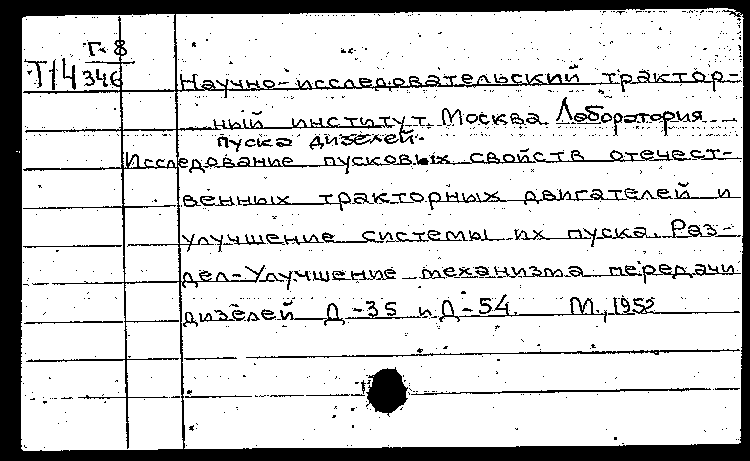 Г-8
Т14 346
Научно-исследовательский трактор-
ный институт. Москва. Лаборатория
пуска дизелей.
Исследование пусковых свойств отечест-
венных тракторных двигателей и
улучшение системы их пуска. Раз-
дел-Улучшение механизма передачи
дизелей Д-35 и Д-54. М., 1952